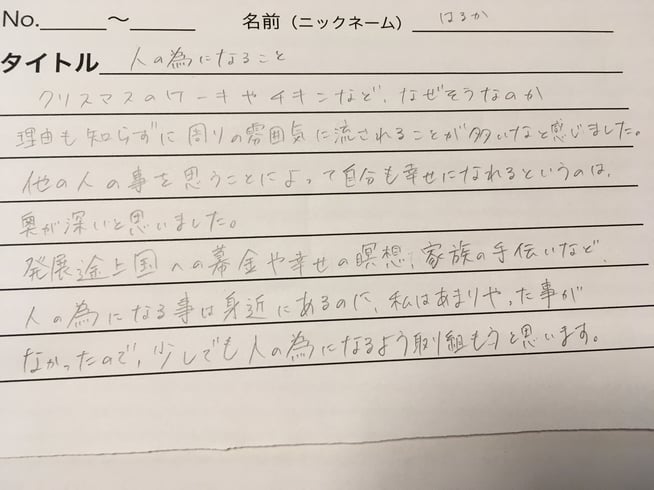 No.____～____ 名前（ニックネーム） はるか
タイトル 人の為になること
クリスマスのケーキやチキンなど、なぜそうなのか
理由も知らずに周りの雰囲気に流されることが多いなと感じました。
他の人の事を思うことによって自分も幸せになれるというのは、
奥が深いと思いました。
発展途上国への募金や幸せの瞑想、家族の手伝いなど、
人の為になる事は身近にあるのに、私はあまりやった事が
なかったので、少しでも人の為になるよう取り組もうと思います。